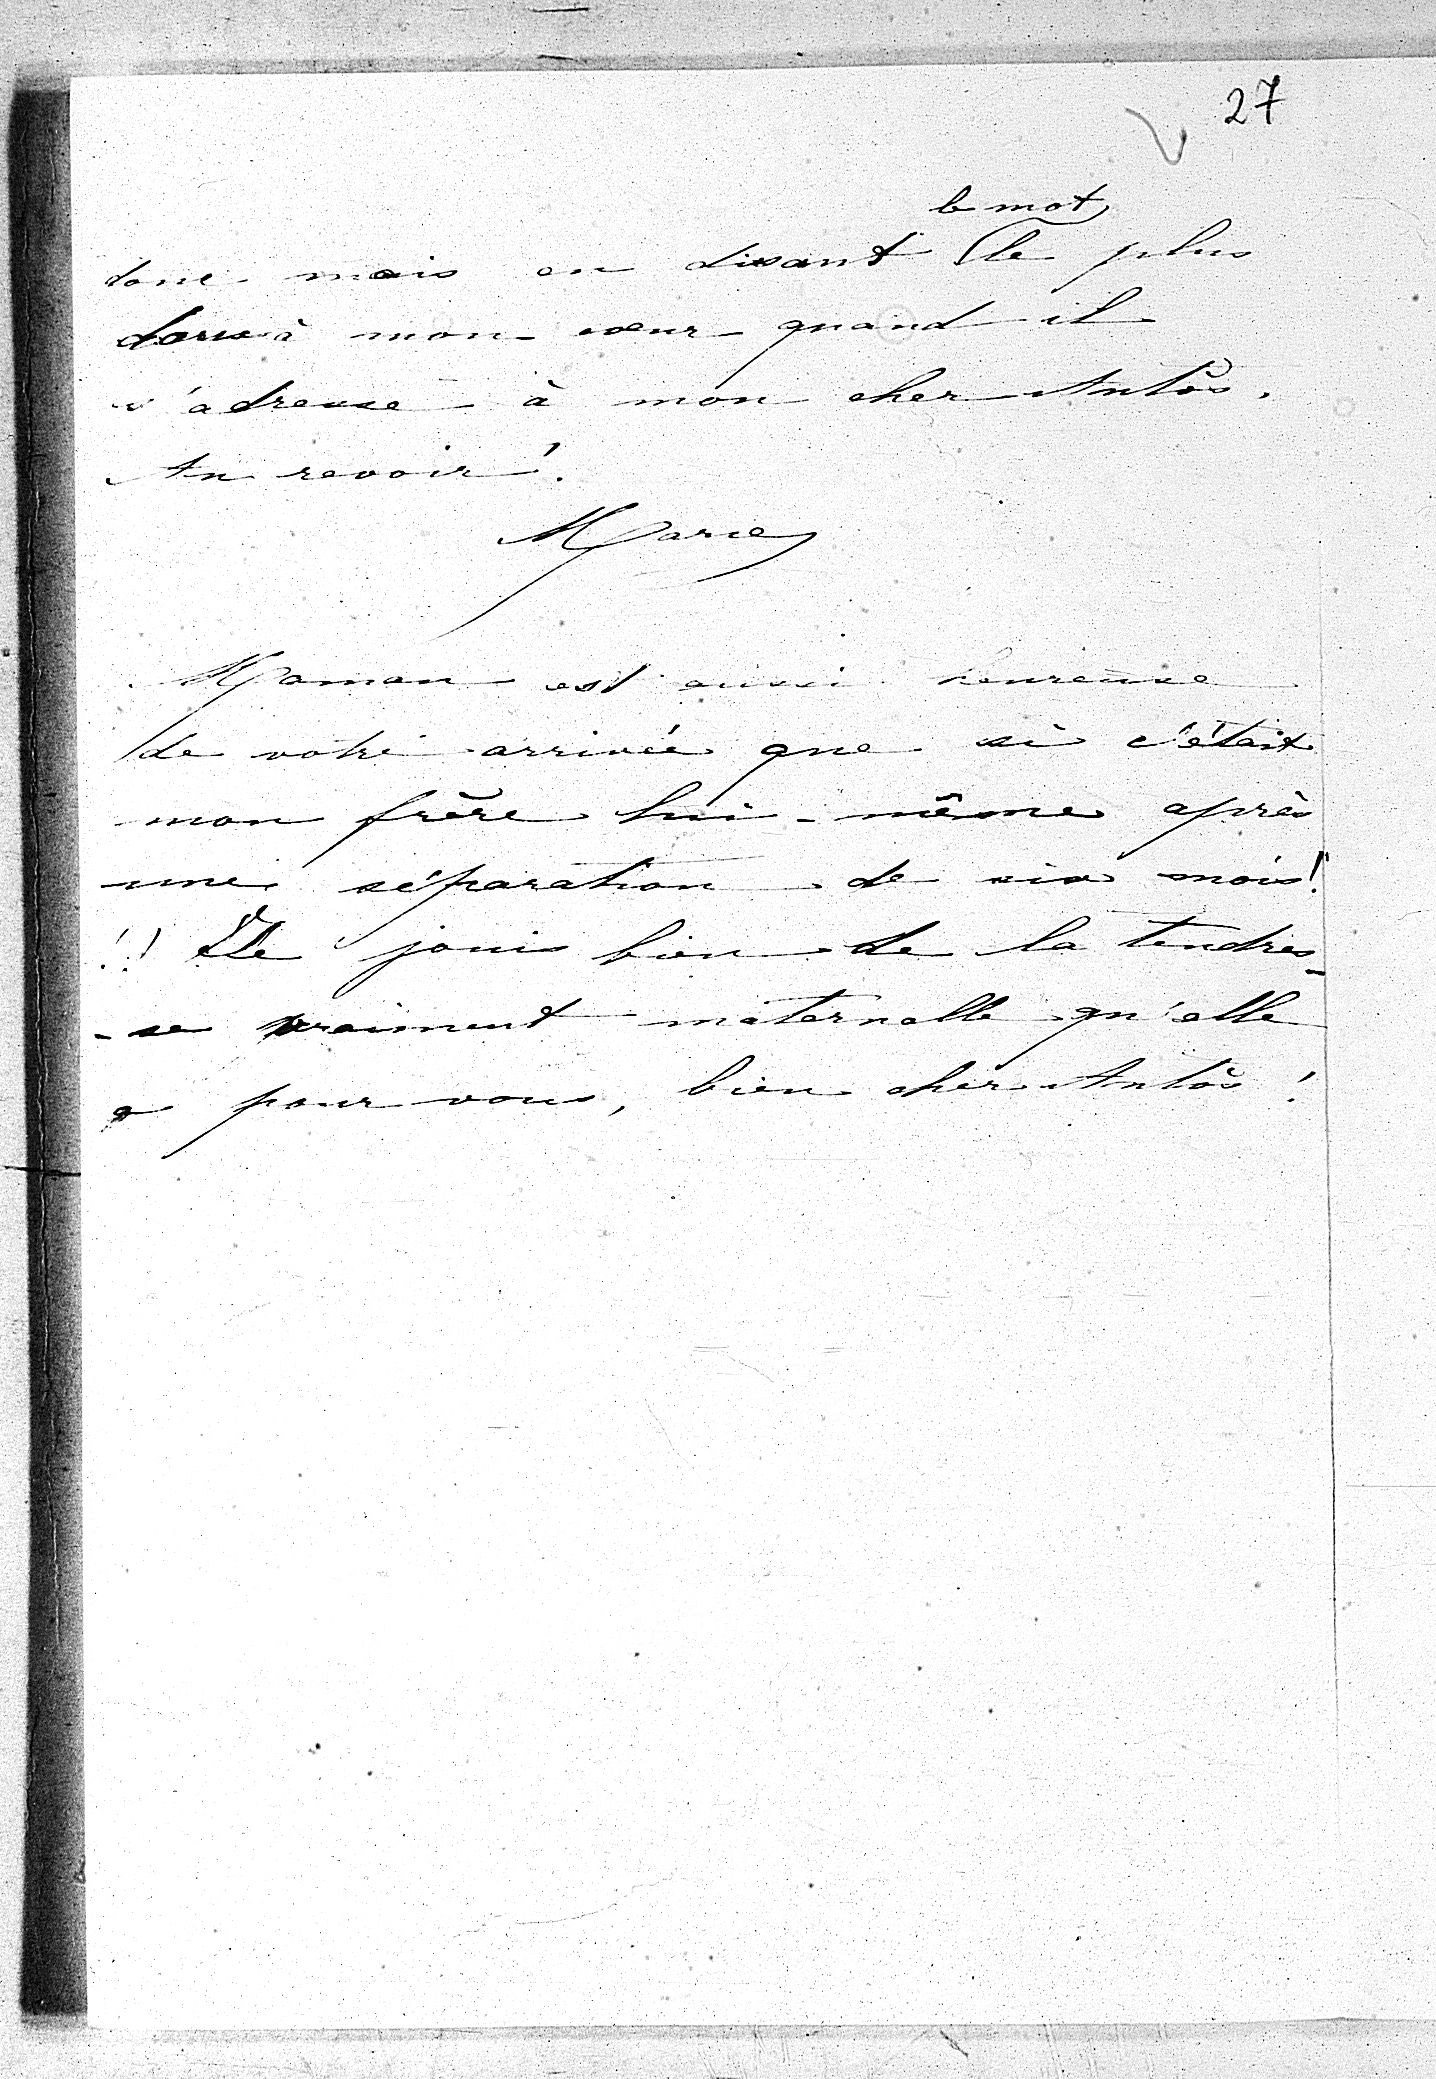 27
le mot
donc mais en disant le plus
doux à mon cœur quand il
s'adresse à mon cher Antôs.
Au revoir!
Marie
Maman est aussi heureuse
de votre arrivée que si c'était
mon frère lui-même après
une séparation de six mois!
!! Je jouis bien de la tendres-
-se vraiment maternelle qu'elle
a pour vous, bien cher Antôs!